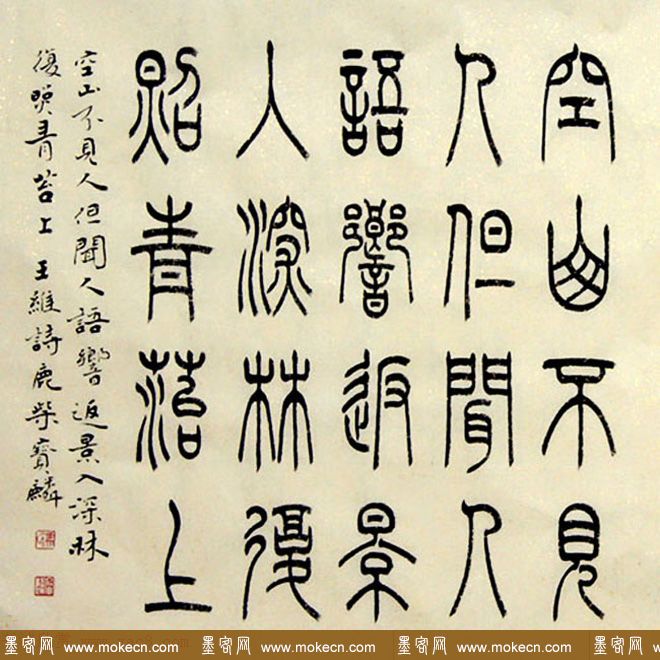 空山不見
人但聞人
語響返景
入深林復
照青菭上
空山不見人但聞人語響返景入深林
復照青苔上 王維詩鹿柴 麟
墨客网 www.mokecn.com 墨客网 www.mokecn.com 墨客网 www.mokecn.com 墨客网 www